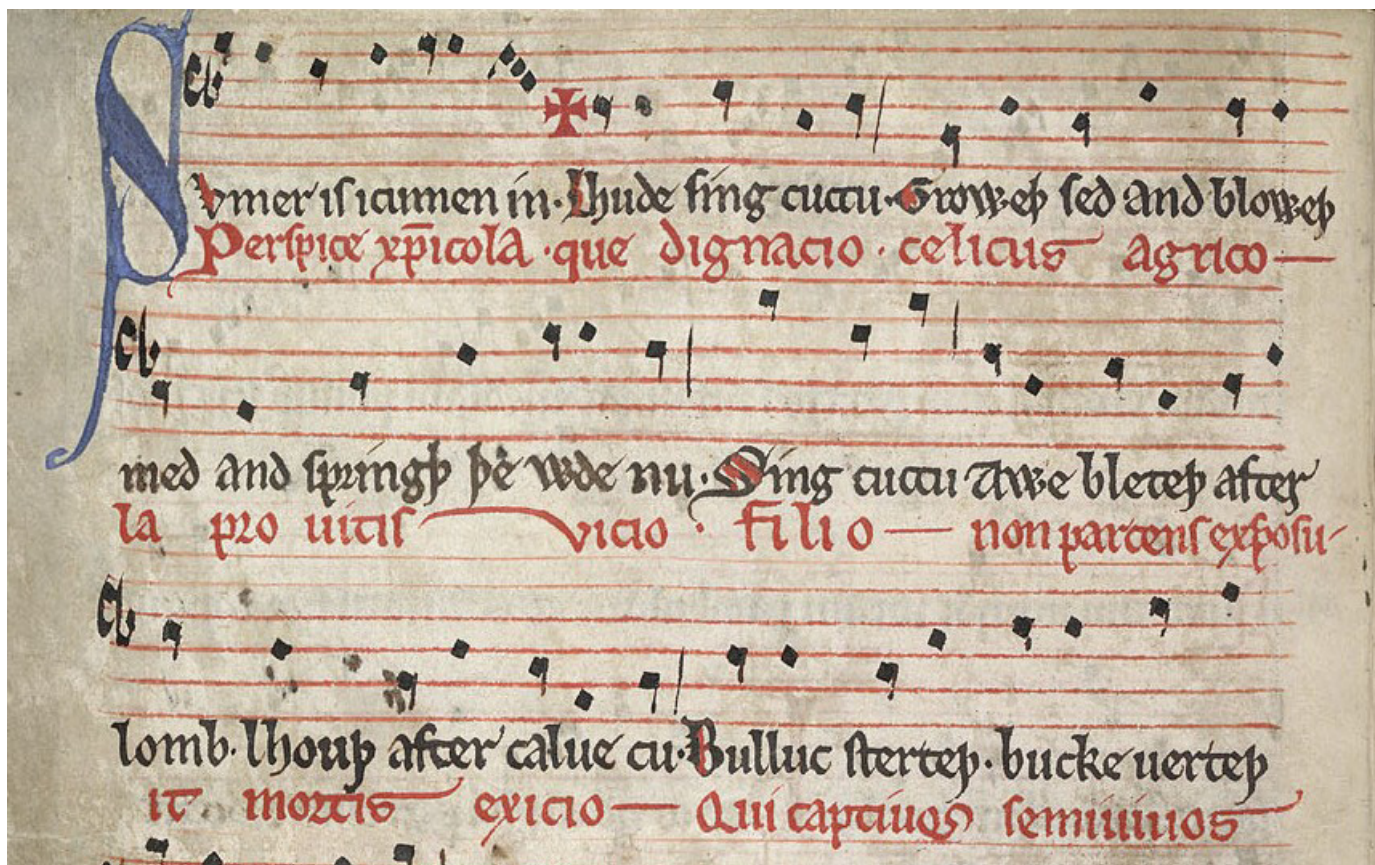 Svmer is icumen in. Lhude sing cuccu. Groweþ sed and bloweþ
Perspice xp̄icola. que dignacio. celicus agrico
med and springþ þe wde nu. Sing cuccu Awe bleteþ after
la pro uitis vicio. filio non parcens exposu
lomb. lhouþ after calue cu. Bulluc sterteþ. bucke uerteþ
it mortis exicio Qui captiuos semiuiuos